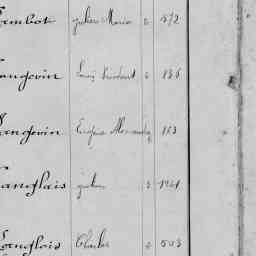 Lambot Julien Marie 2 572
Langevin Louis 2 136
Langevin Eugène Alexandre 2 153
Langlais Julien 2
Langlois Charles 2 503